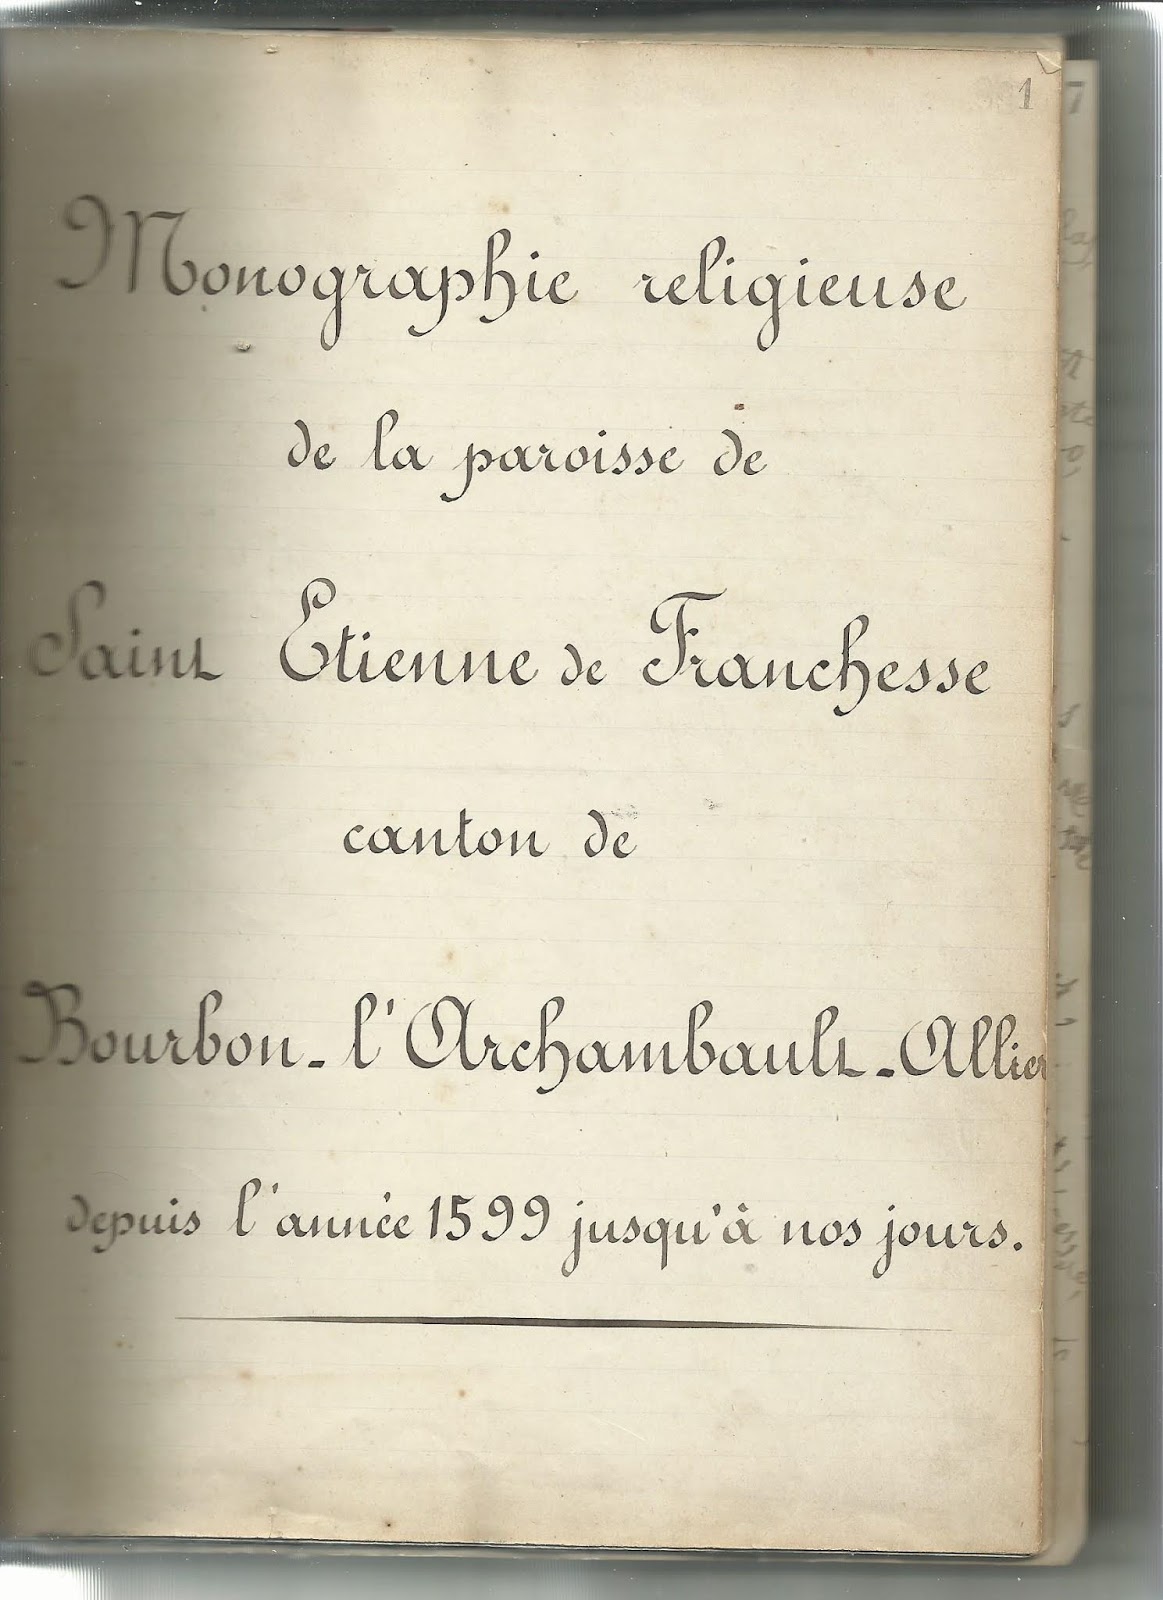 1
Monographie religieuse
de la paroisse de
Saint Etienne de Franchesse
canton de
Bourbon-l'Archambault-Allier
depuis l'année 1599 jusqu'à nos jours.
7